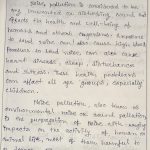 Noise pollution is considered to be
any unwanted or disturbing sound that
affects the health and well-being of
humans and other organisms. Exposure
to loud noise can also cause high blood
pressure to loud noise, can also cause
heart disease, sleep disturbances
and stress. These health problems
can affect all age groups, especially
children.
Noise pollution, also known as
environmental noise or sound pollution
is the propagation of noise with
impacts on the activity of human or
animal life, most of them harmful to